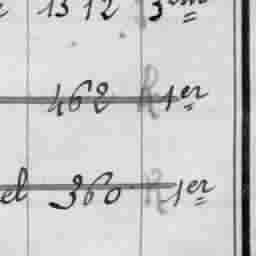 1312 3em
462 1er
el 360 1er